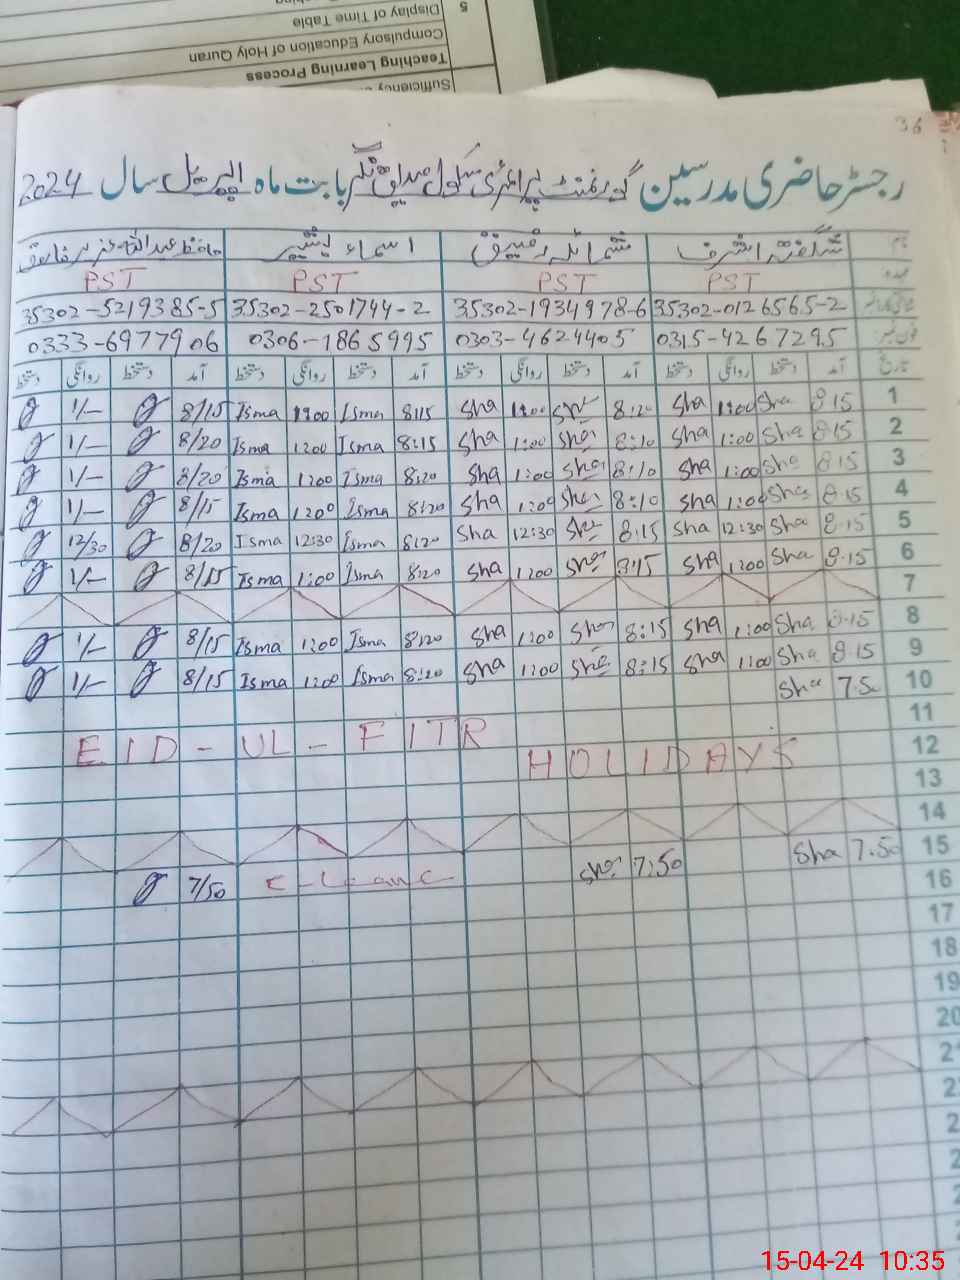 Sufficiency
Teaching Learning Process
Compulsory Education of Holy Quran
5 Display of Time Table
36
رجسٹر حاضری مدرسین گورنمنٹ پرائمری سکول صدیق نگر بابت ماہ اپریل سال 2024
نام شگفتہ اشرف شمائلہ رفیق اسماء بشیر حافظ عبداللہ
عہدہ PST PST PST PST
35302-0126565-2 35302-1934978-6 35302-2501744-2 35302-5219385-5
فون نمبر 0315-4267295 0303-4624405 0306-1865995 0333-6977906
تاریخ آمد دستخط روانگی دستخط آمد دستخط روانگی دستخط آمد دستخط روانگی دستخط آمد دستخط روانگی دستخط
1 8:15 Sha 1:00 Sha 8:20 Sha 1:00 Sha 8:15 Isma 1:00 Isma 8/15 1/-
2 8:15 Sha 1:00 Sha 8:10 Sha 1:00 Sha 8:15 Isma 1:00 Isma 8/20 1/-
3 8:15 Sha 1:00 Sha 8:10 Sha 1:00 Sha 8:20 Isma 1:00 Isma 8/20 1/-
4 8:15 Sha 1:00 Sha 8:10 Sha 1:00 Sha 8:20 Isma 1:00 Isma 8/15 1/-
5 8:15 Sha 12:30 Sha 8:15 Sha 12:30 Sha 8:20 Isma 12:30 Isma 8/20 12/30
6 8:15 Sha 1:00 Sha 8:15 Sha 1:00 Sha 8:20 Isma 1:00 Isma 8/15 1/-
7
8 8:15 Sha 1:00 Sha 8:15 Sha 1:00 Sha 8:20 Isma 1:00 Isma 8/15 1/-
9 8:15 Sha 1:00 Sha 8:15 Sha 1:00 Sha 8:20 Isma 1:00 Isma 8/15 1/-
10 7:50 Sha
11
12 EID-UL-FITR HOLIDAYS
13
14
15 7:50 Sha 7:50 Sha C-Leave 7/50
16
17
18
19
20
15-04-24 10:35